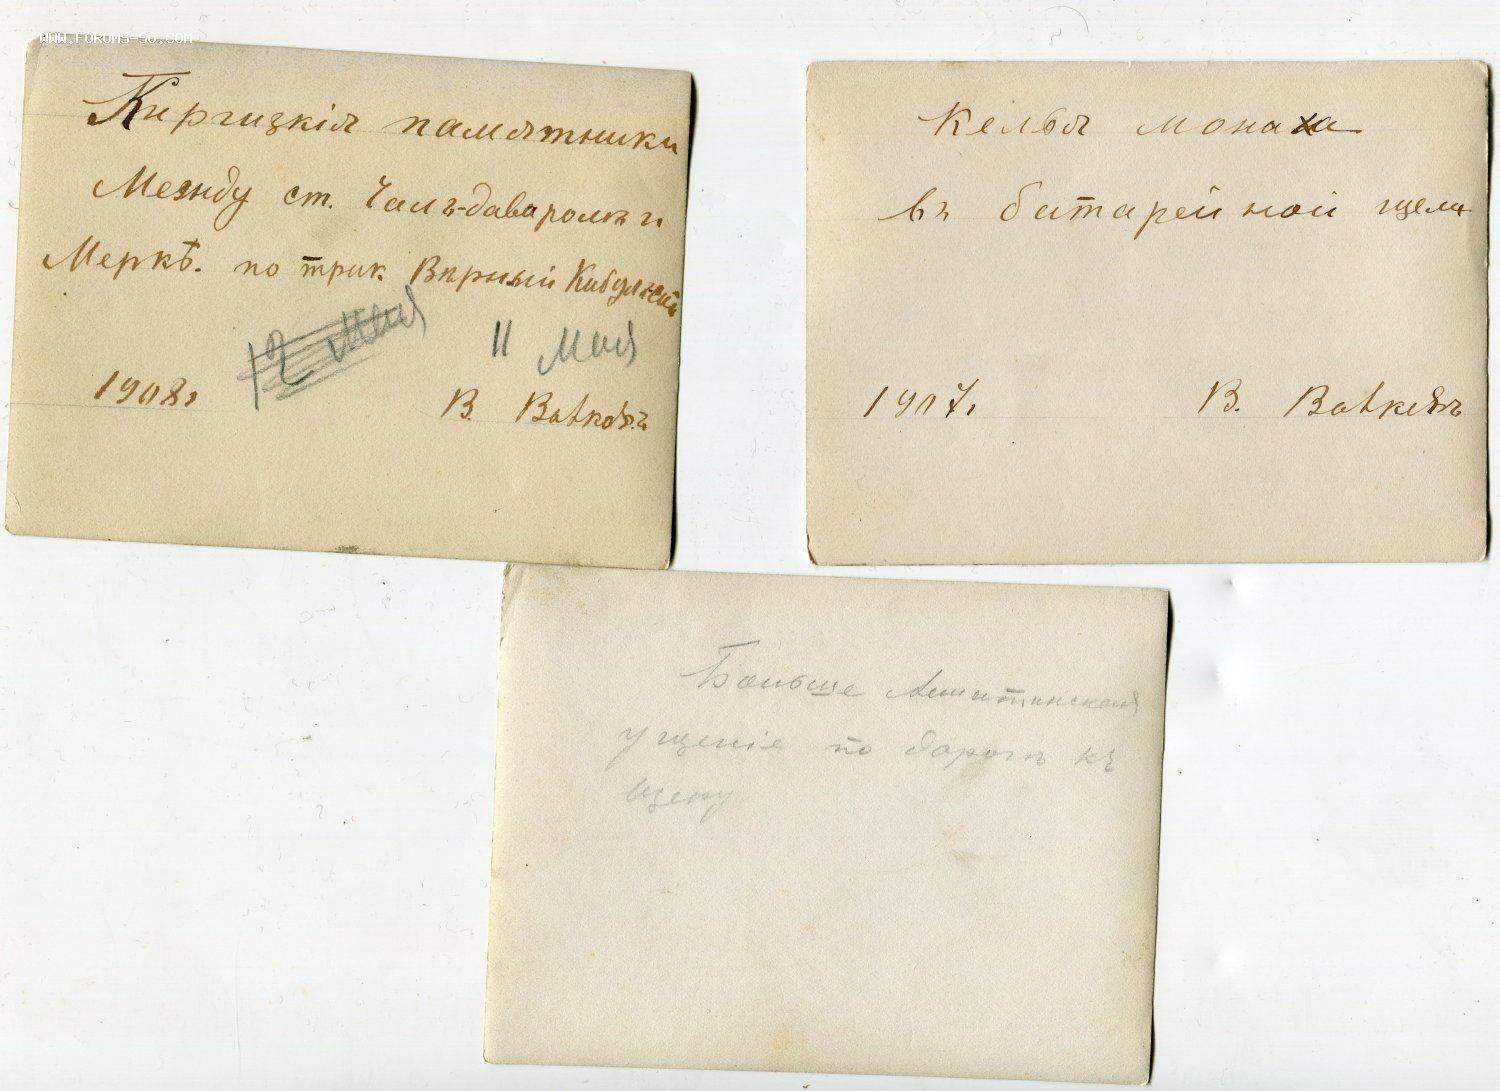 WWW.FORUMS-SU.COM
Киргизкія памятники
Между ст. Чалъ-даваромъ и
Меркѣ. по трак Вѣрный
12 Мая
11 Мая
1908г
В.
Келья монаха
въ батарейной щели
1907г
В.
Больше Алматинская
ущеліе по дорогѣ къ